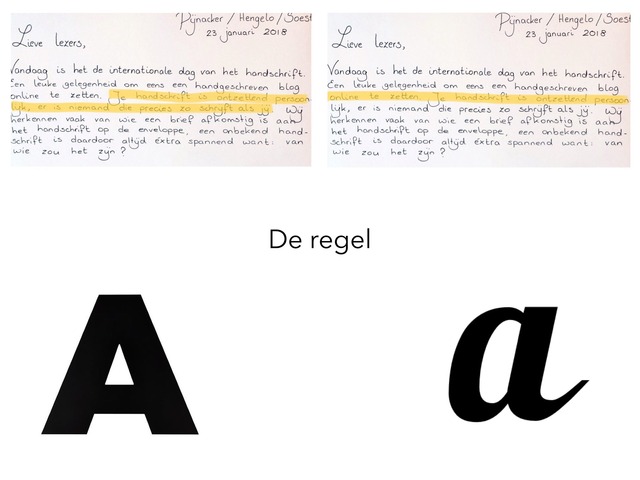 Pijnacker / Hengelo / Soest
23 januari 2018
Lieve lezers,
Vandaag is het de internationale dag van het handschrift.
Een leuke gelegenheid om eens een handgeschreven blog
online te zetten. Je handschrift is ontzettend persoon
lijk, er is niemand die precies zo schrijft als jij. Wij
herkennen vaak van wie een brief afkomstig is aan
het handschrift op de enveloppe, een onbekend hand-
schrift is daardoor altijd éxtra spannend want: van
wie zou het zijn?
Pijnacker / Hengelo / Soest
23 januari 2018
Lieve lezers,
Vandaag is het de internationale dag van het handschrift.
Een leuke gelegenheid om eens een handgeschreven blog
online te zetten. Je handschrift is ontzettend persoon
lijk, er is niemand die precies zo schrijft als jij. Wij
herkennen vaak van wie een brief afkomstig is aan
het handschrift op de enveloppe, een onbekend hand-
schrift is daardoor altijd éxtra spannend want: van
wie zou het zijn?
De regel
A a